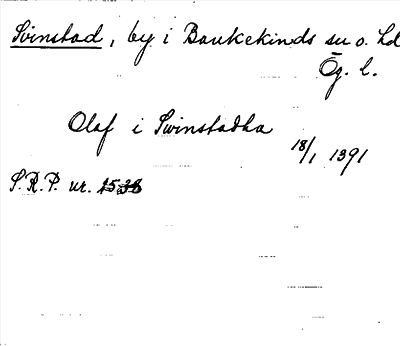 Svinstad, by i Bankekinds su o. hd
Ög. l.
Olaf i Swinstadha
18/1 1391
S.R.P. nr.